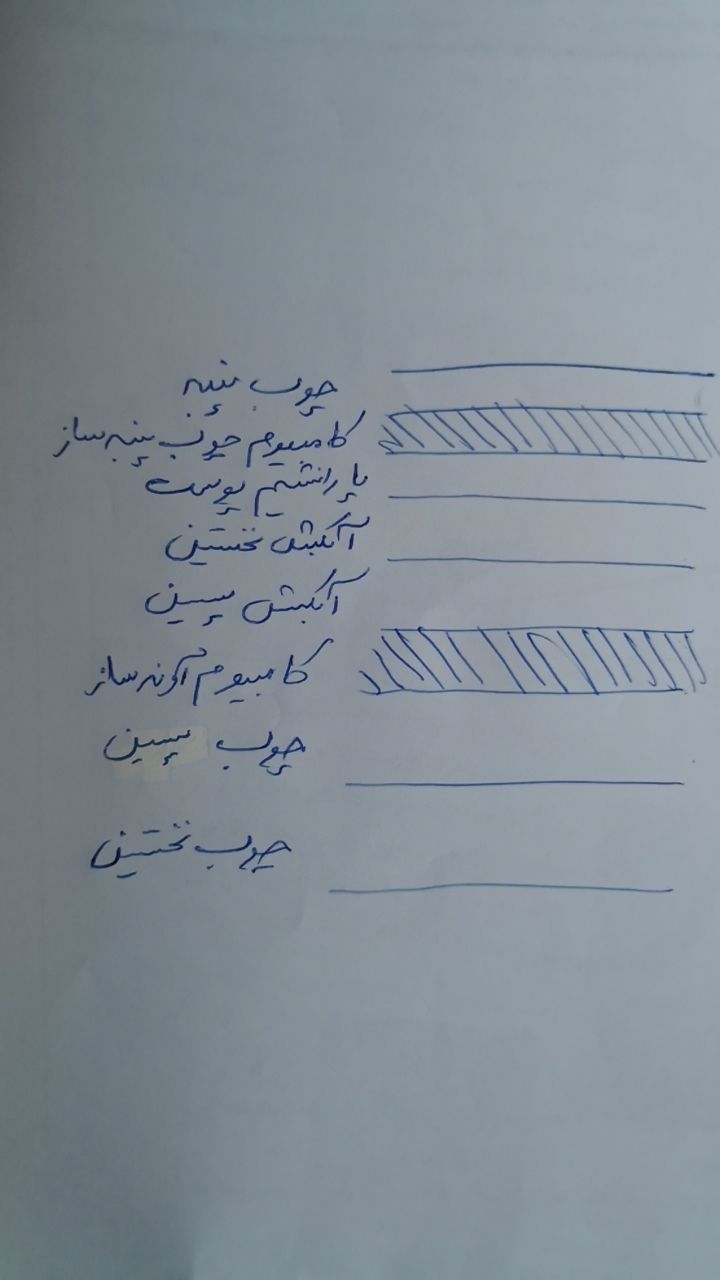 چوب پنبه
کامبیوم چوب پنبه ساز
پارانشیم پوست
آبکش نخستین
آبکش پسین
کامبیوم آوند ساز
چوب پسین
چوب نخستین